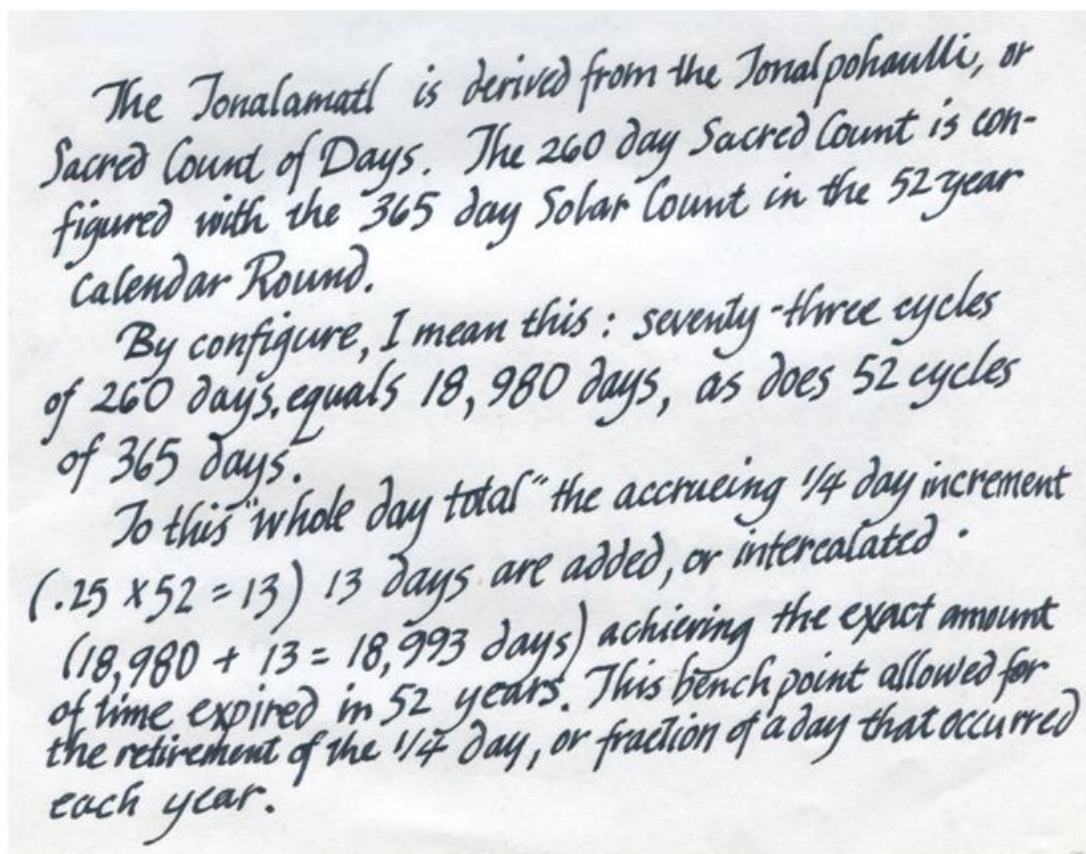 The Tonalamatl is derived from the Tonalpohaulli, or
Sacred Count of Days. The 260 day Sacred Count is con-
figured with the 365 day Solar Count in the 52 year
Calendar Round.
By configure, I mean this: seventy-three cycles
of 260 days, equals 18,980 days, as does 52 cycles
of 365 days.
To this "whole day total" the accrueing 1/4 day increment
(.25 x 52 = 13) 13 days are added, or intercalated.
(18,980 + 13 = 18,993 days) achieving the exact amount
of time expired in 52 years. This bench point allowed for
the retirement of the 1/4 day, or fraction of a day that occurred
each year.